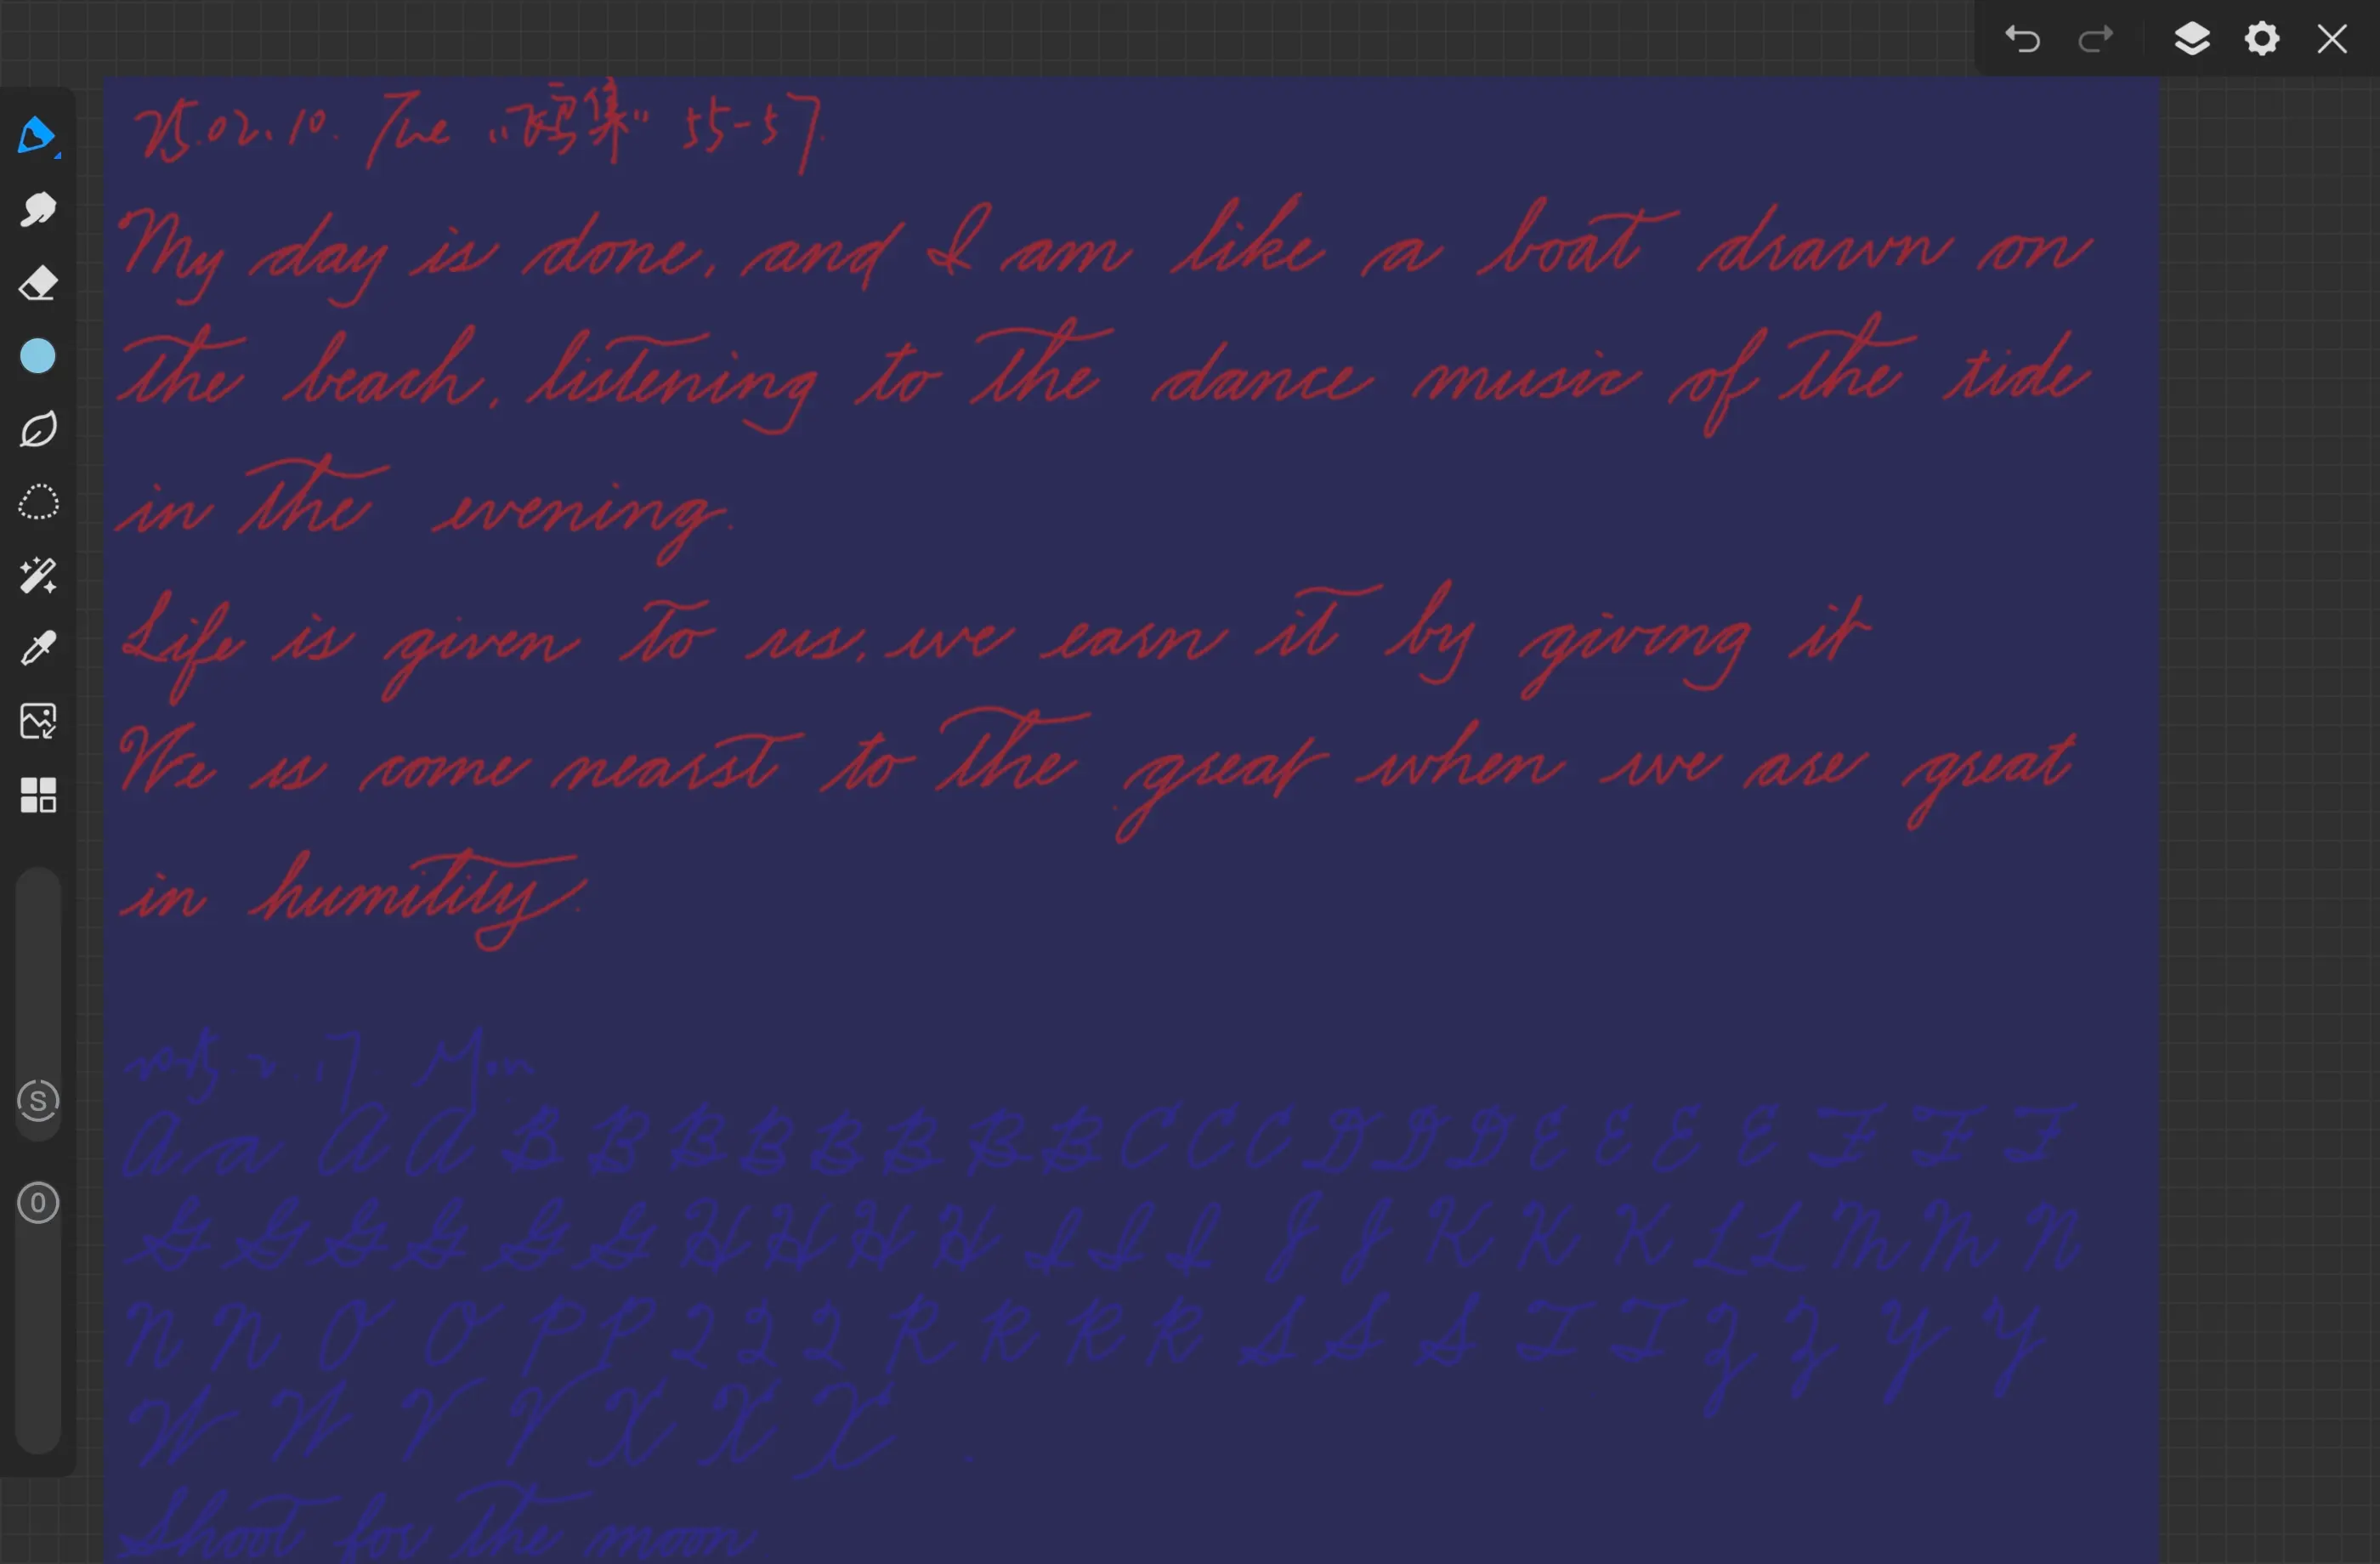 25.02.10. Tue 《飞鸟集》 55-57.
My day is done, and I am like a boat drawn on
the beach, listening to the dance music of the tide
in the evening.
Life is given to us, we earn it by giving it
We is come nearst to the great when we are great
in humility.
25.2.17 Mon
A a A A B B B B B B B B C C C D D D E E E E F F F
G G G G G G H H H H I I I J J K K K L L M M N
N N O O P P Q Q Q R R R R S S S T T Z Z Y Y
W W V V X X X
Shoot for the moon
S
O